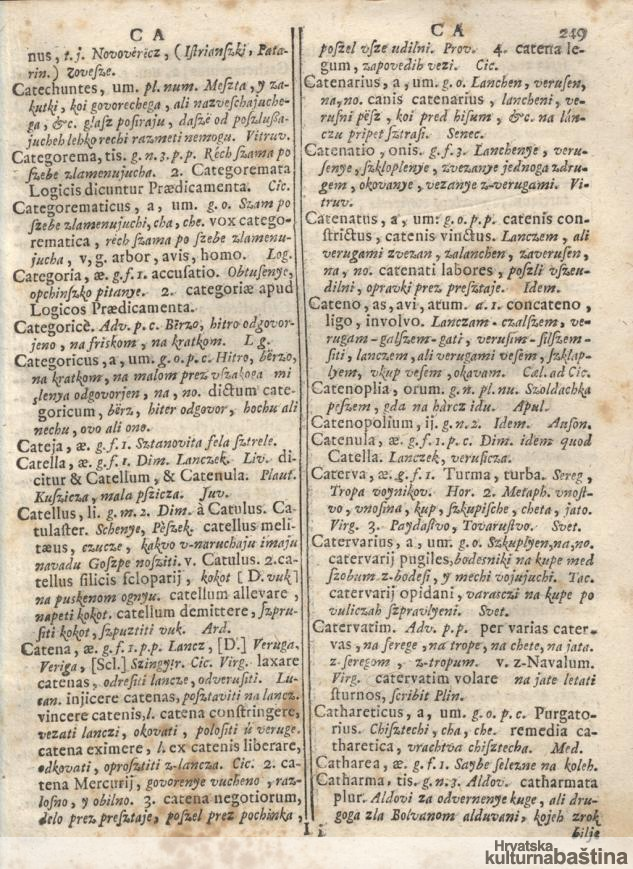 CA
CA 249
nus, t.j. Novovèrëcz, (Istrianszki, Patarin.) zovesze.
Catechuntes, um. pl. num. Meszta, y zakutki, koi govorechega, ali nazveschajuchega, &c. glasz posiraju, daszè od poszlussajucheh lehko rechi razmeti nemogu. Vitruv.
Categorema, tis. g. n. 3. p. p. Rèch szama po
szebe zlamenujucha. 2. Categoremata
Logicis dicuntur Prædicamenta. Cic.
Categorematicus, a, um. g. o. Szam po
szebe zlamenujuchi, cha, che. vox catego-
rematica, rèch szama po szebe zlamenu-
jucha, v, g. arbor, avis, homo. Log.
Categoria, æ. g. f. 1. accusatio. Obtusenye,
opchinszko pitanye. 2. categoriæ apud
Logicos Prædicamenta.
Categoricè. Adv. p. c. Bërzo, hitro odgovor-
jeno, na friskom, na kratkom. L g.
Categoricus, a, um. g. o. p. c. Hitro, bërzo,
na kratkom, na malom prez vszakoga mi
slenya odgovorjen, na, no. dictum cate-
goricum, bërz, hiter odgovor, hochu ali
nechu, ovo ali ono.
Cateja, æ. g. f. 1. Sztanovita fela sztrele.
Catella, æ. g. f. 1. Dim. Lanczek. Liv. di-
citur & Catellum, & Catenula. Plaut.
Kuszicza, mala pszicza. Juv.
Catellus, li. g. m. 2. Dim. à Catulus. Ca-
tulaster. Schenye, Pèszek. catellus meli-
tæus, czucze, kakvo v-naruchaju imaju
navadu Goszpe nosziti. v. Catulus. 2. ca-
tellus silicis scloparij, kokot [D. vuk]
na puskenom ognyu. catellum allevare,
napeti kokot. catellum demittere, szpru-
siti kokot, szpuztiti vuk. Ard.
Catena, æ. g. f. 1. p. p. Lancz, [D.] Veruga,
Veriga, [Scl.] Szingyir. Cic. Virg. laxare
catenas, odresiti lancze, odverusiti. Lu-
can. injicere catenas, posztaviti na lancz.
vincere catenis, l. catena constringere,
vezati lanczi, okovati, polositi ú veruge.
catena eximere, l. ex catenis liberare,
odkovati, oprosztiti z-lancza. Cic. 2. ca-
tena Mercurij, govorenye vucheno, raz-
losno, y obilno. 3. catena negotiorum,
delo prez presztaje, poszel prez pochinka,
poszel vsze udilni. Prov. 4. catena le-
gum, zapovedih vezi. Cic.
Catenarius, a, um. g. o. Lanchen, verusen,
na, no. canis catenarius, lancheni, ve-
rusni pësz, koi pred hisum, &c. na lán-
czu pripet sztrasi. Senec.
Catenatio, onis. g. f. 3. Lanchenye, veru-
senye, szkloplenye, zvezanye jednoga zdru-
gem, okovanye, vezanye z-verugami. Vi-
truv.
Catenatus, a, um. g. o. p. p. catenis con-
strictus, catenis vinctus. Lanczem, ali
verugami zvezan, zalanchen, zaverusen,
na, no. catenati labores, poszli vszeu-
dilni, opravki prez presztaje. Idem.
Cateno, as, avi, atum. a. 1. concateno,
ligo, involvo. Lanczam-czalszem, ve-
rugam-galszem-gati, verusim-silszem-
siti, lanczem, ali verugami vesem, szklap-
lyem, vkup vesem, okavam. Cæl. ad Cic.
Catenoplia, orum. g. n. pl. nu. Szoldachka
peszem, gda na hàrcz idu. Apul.
Catenopolium, ij. g. n. 2. Idem. Auson.
Catenula, æ. g. f. 1. p. c. Dim. idem quod
Catella. Lanczek, verusicza.
Caterva, æ. g. f. 1. Turma, turba. Sereg,
Tropa voynikov. Hor. 2. Metaph. vnost-
vo, vnosina, kup, szkupische, cheta, jato.
Virg. 3. Paydastvo, Tovarustvo. Svet.
Catervarius, a, um. g. o. Szkuplyen, na, no.
catervarij pugiles, bodesniki na kupe med
szobum z-bodesi, y mechi vojujuchi. Tac.
catervarij opidani, varasczi na kupe po
vuliczah szpravlyeni. Svet.
Catervatim. Adv. p. p. per varias cater-
vas, na serege, na trope, na chete, na jata.
z-seregom, z-tropum. v. z-Navalum.
Virg. catervatim volare na jate letati
sturnos, scribit Plin.
Cathareticus, a, um. g. o. p. c. Purgato-
rius. Chisztechi, cha, che. remedia ca-
tharetica, vrachtva chisztecha. Med.
Catharea, æ. g. f. 1. Saybe selezne na koleh.
Catharma, tis. g. n. 3. Aldov. catharmata
plur. Aldovi za odvernenye kuge, ali dru-
goga zla Bolvanom alduvani, kojeh zrok
I i bilje
Hrvatska
kulturnabaština